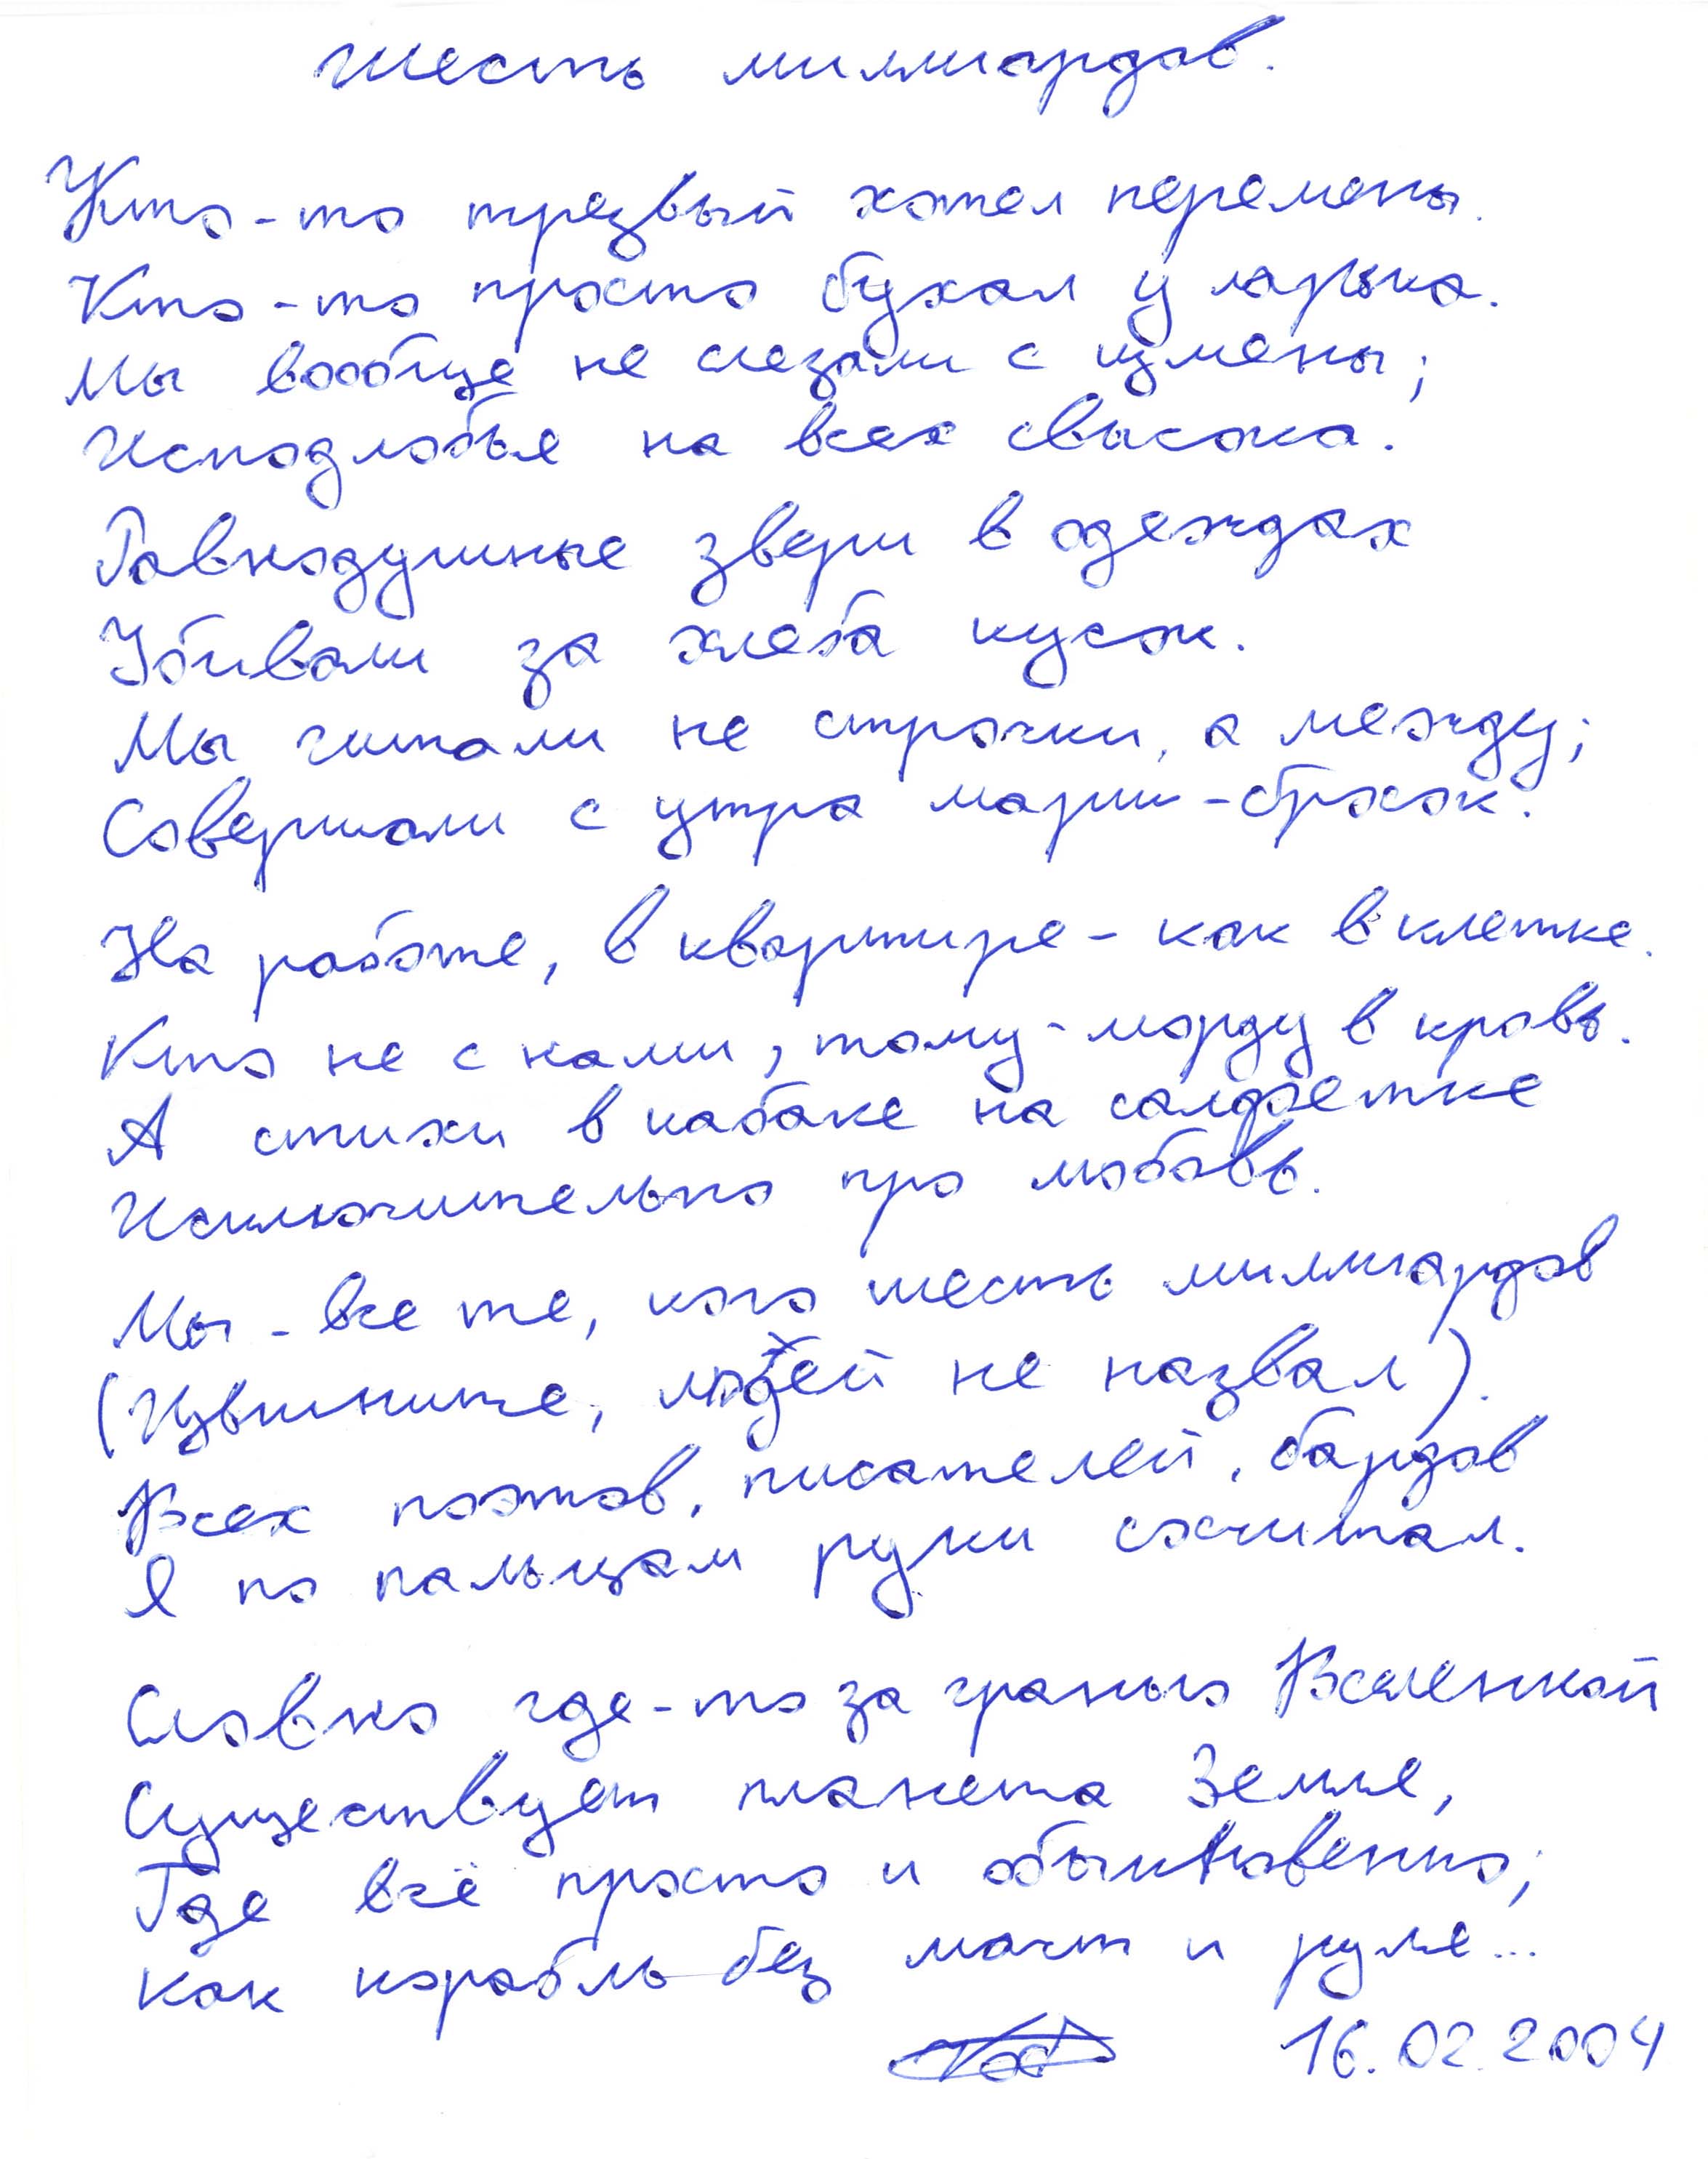 Шесть миллиардов.
Кто-то трезвый хотел перемены.
Кто-то просто бухал у ларька.
Мы вообще не слезали с измены;
Исподлобья на всех свысока.
Равнодушные звери в одеждах
Убивали за хлеба кусок.
Мы читали не строчки, а между;
Совершали с утра марш-бросок.
На работе, в квартире - как в клетке.
Кто не с нами, тому - морду в кровь.
А стихи в кабаке на салфетке
Исключительно про любовь.
Мы - все те, кого шесть миллиардов
(Извините, людей не назвал).
Всех поэтов, писателей, бардов
Я по пальцам руки сосчитал.
Словно где-то за гранью Вселенной
Существует планета Земля,
Где всё просто и обыкновенно;
Как корабль без мачт и руля...
16.02.2004